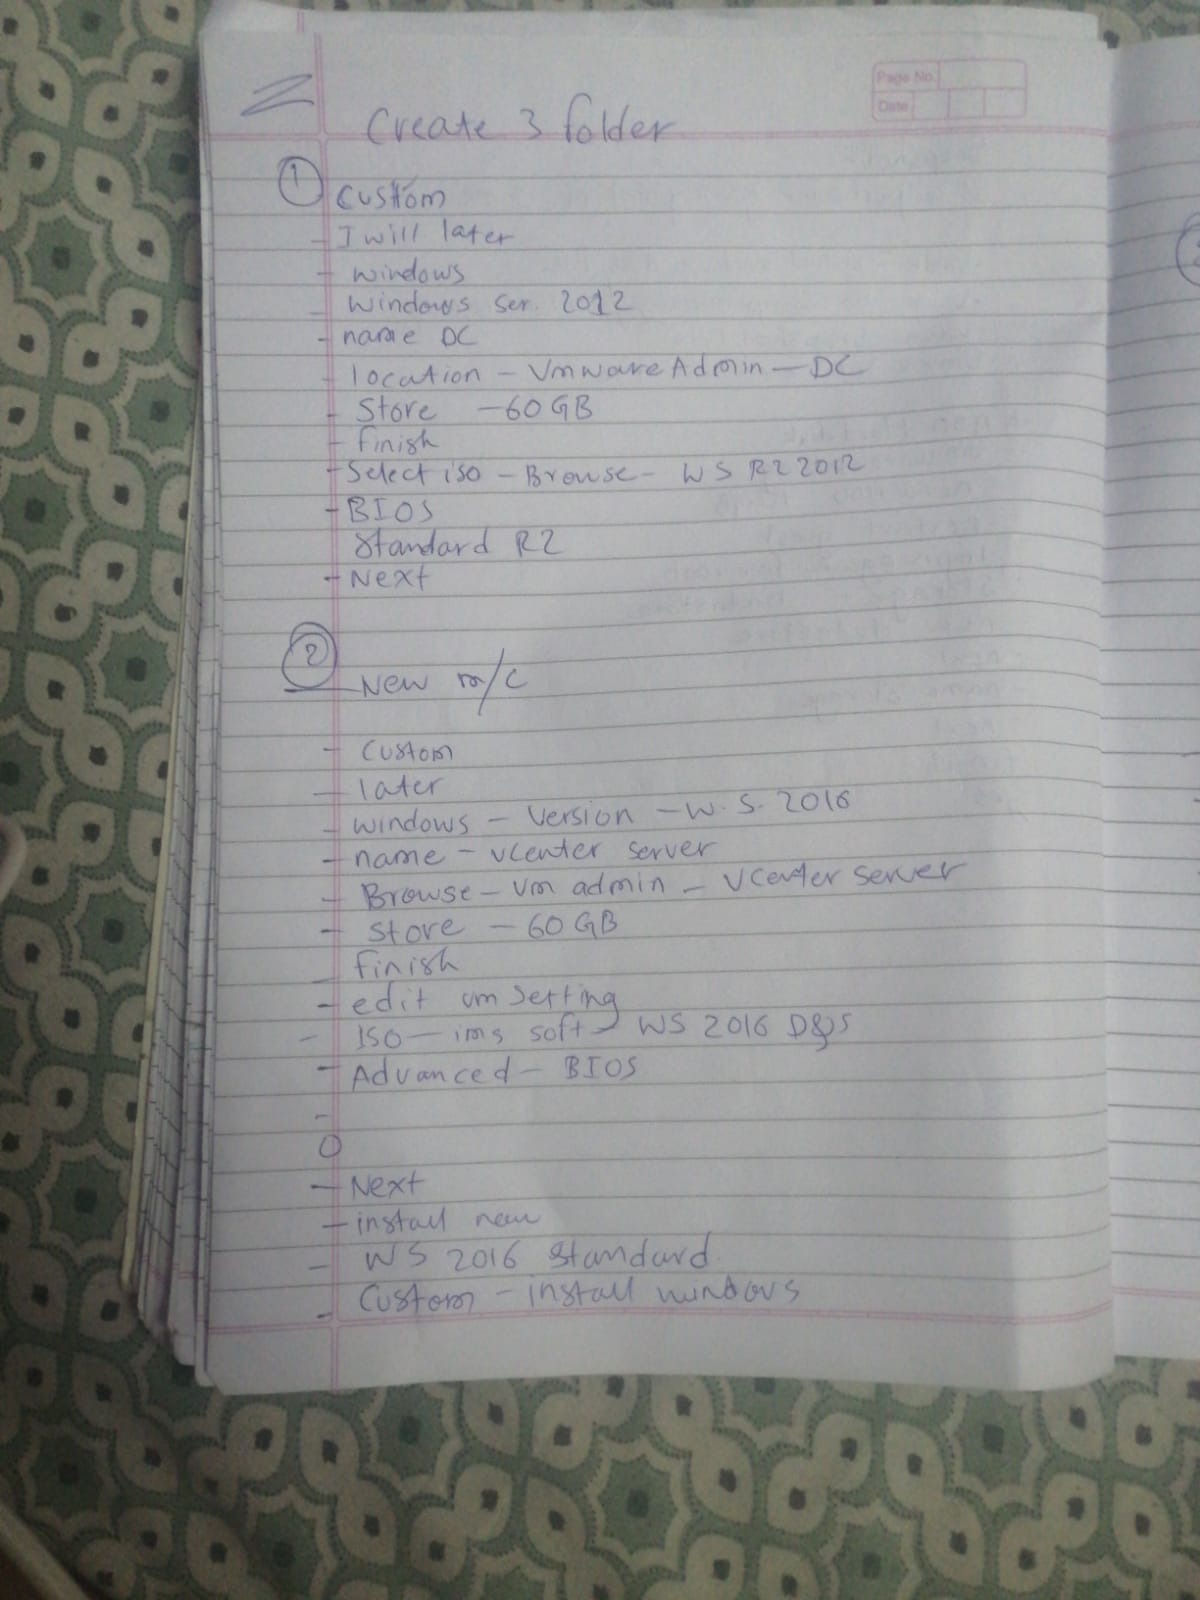 Page No.
Date
Create 3 folder
1 Custom
- I will later
- windows
- windows ser. 2012
- name DC
- location - Vmware Admin - DC
- Store - 60 GB
- finish
- Select iso - Browse - WS R2 2012
- BIOS
Standard R2
- Next
2
New m/c
- Custom
- later
- windows - Version - W.S. 2016
- name - vcenter server
- Browse - vm admin - Vcenter server
- Store - 60 GB
- finish
- edit vm setting
- ISO - ims soft - WS 2016
- Advanced - BIOS
-
O
- Next
- install new
- WS 2016 Standard
- Custom - install windows